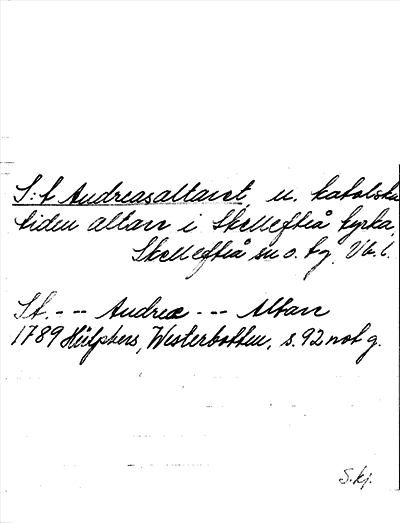 S:t Andreasaltaret, u. katolska
tiden altare i Skellefteå kyrka,
Skellefteå sn o. ty, Vb. l.
St. - - - Andreæ - - - Altare
1789 Hülphers, Westerbotten, s. 92 not g.
S. kj.